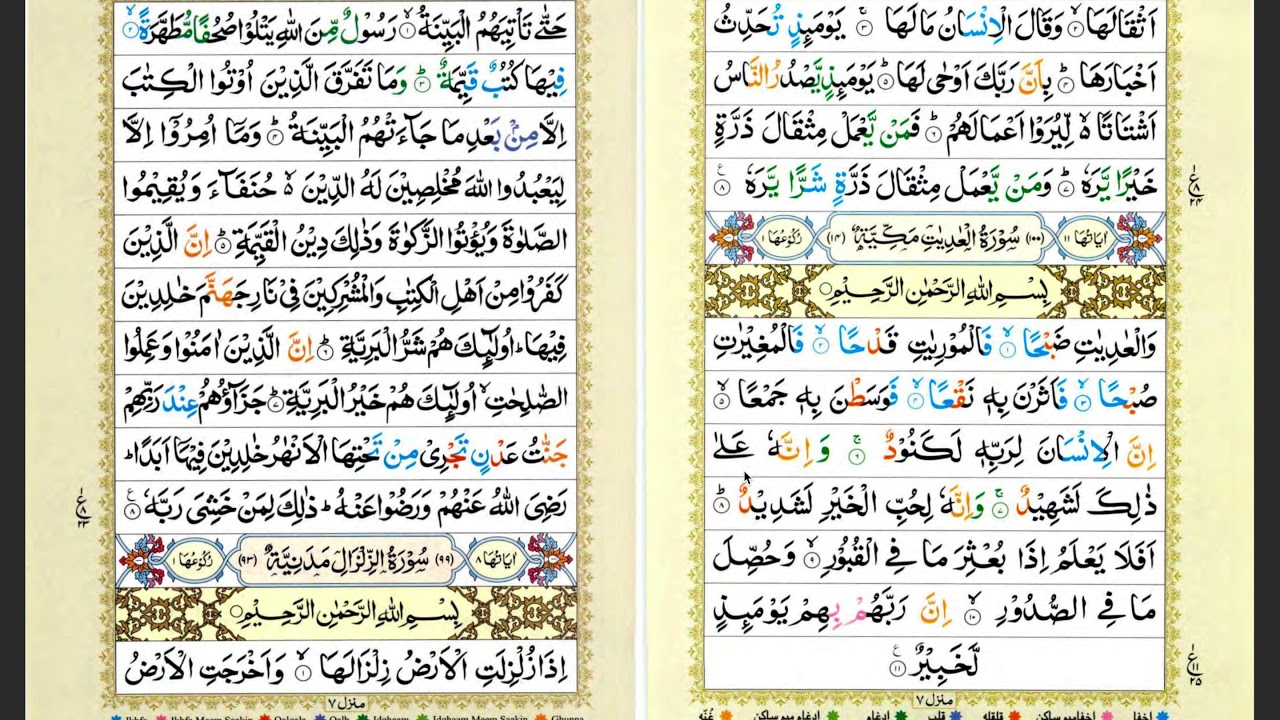 حَتّٰى تَاْتِيَهُمُ الْبَيِّنَةُ ۙ‏﴿۱﴾ رَسُوْلٌ مِّنَ اللّٰهِ يَتْلُوْا صُحُفًا مُّطَهَّرَةً ۙ‏﴿۲﴾
فِيْهَا كُتُبٌ قَيِّمَةٌ ؕ‏﴿۳﴾ وَمَا تَفَرَّقَ الَّذِيْنَ اُوْتُوا الْكِتٰبَ
اِلَّا مِنْۢ بَعْدِ مَا جَآءَتْهُمُ الْبَيِّنَةُ ؕ‏﴿۴﴾ وَمَاۤ اُمِرُوْۤا اِلَّا
لِيَعْبُدُوا اللّٰهَ مُخْلِصِيْنَ لَهُ الدِّيْنَ ۙ۬ حُنَفَآءَ وَيُقِيْمُوا
الصَّلٰوةَ وَيُؤْتُوا الزَّكٰوةَ وَذٰلِكَ دِيْنُ الْقَيِّمَةِ ؕ‏﴿۵﴾ اِنَّ الَّذِيْنَ
كَفَرُوْا مِنْ اَهْلِ الْكِتٰبِ وَالْمُشْرِكِيْنَ فِىْ نَارِ جَهَنَّمَ خٰلِدِيْنَ
فِيْهَا ؕ اُولٰٓئِكَ هُمْ شَرُّ الْبَرِيَّةِ ؕ‏﴿۶﴾ اِنَّ الَّذِيْنَ اٰمَنُوْا وَعَمِلُوا
الصّٰلِحٰتِ ۙ اُولٰٓئِكَ هُمْ خَيْرُ الْبَرِيَّةِ ؕ‏﴿۷﴾ جَزَآؤُهُمْ عِنْدَ رَبِّهِمْ
جَنّٰتُ عَدْنٍ تَجْرِىْ مِنْ تَحْتِهَا الْاَنْهٰرُ خٰلِدِيْنَ فِيْهَاۤ اَبَدًا ؕ
رَضِىَ اللّٰهُ عَنْهُمْ وَرَضُوْا عَنْهُ ؕ ذٰلِكَ لِمَنْ خَشِىَ رَبَّهٗ‏﴿۸﴾
اٰيَاتُهَا ۸ (۹۹) سُوْرَةُ الزِّلْزَالِ مَدَنِيَّةٌ (۹۳) رُكُوْعُهَا ۱
بِسْمِ اللّٰهِ الرَّحْمٰنِ الرَّحِيْمِ
اِذَا زُلْزِلَتِ الْاَرْضُ زِلْزَالَهَا ۙ‏﴿۱﴾ وَاَخْرَجَتِ الْاَرْضُ
منزل ۷
Ikhfa Ikhfa Meem Saakin Qalqala Qalb Idghaam Idghaam Meem Saakin Ghunna
اَثْقَالَهَا ۙ‏﴿۲﴾ وَقَالَ الْاِنْسَانُ مَا لَهَا ۚ‏﴿۳﴾ يَوْمَئِذٍ تُحَدِّثُ
اَخْبَارَهَا ؕ‏﴿۴﴾ بِاَنَّ رَبَّكَ اَوْحٰى لَهَا ؕ‏﴿۵﴾ يَوْمَئِذٍ يَّصْدُرُ النَّاسُ
اَشْتَاتًا ۙ۬ لِّيُرَوْا اَعْمَالَهُمْ ؕ‏﴿۶﴾ فَمَنْ يَّعْمَلْ مِثْقَالَ ذَرَّةٍ
خَيْرًا يَّرَهٗ ؕ‏﴿۷﴾ وَمَنْ يَّعْمَلْ مِثْقَالَ ذَرَّةٍ شَرًّا يَّرَهٗ‏﴿۸﴾
اٰيَاتُهَا ۱۱ (۱۰۰) سُوْرَةُ الْعٰدِيٰتِ مَكِّيَّةٌ (۱۴) رُكُوْعُهَا ۱
بِسْمِ اللّٰهِ الرَّحْمٰنِ الرَّحِيْمِ
وَالْعٰدِيٰتِ ضَبْحًا ۙ‏﴿۱﴾ فَالْمُوْرِيٰتِ قَدْحًا ۙ‏﴿۲﴾ فَالْمُغِيْرٰتِ
صُبْحًا ۙ‏﴿۳﴾ فَاَثَرْنَ بِهٖ نَقْعًا ۙ‏﴿۴﴾ فَوَسَطْنَ بِهٖ جَمْعًا ۙ‏﴿۵﴾
اِنَّ الْاِنْسَانَ لِرَبِّهٖ لَكَنُوْدٌ ۚ‏﴿۶﴾ وَاِنَّهٗ عَلٰى
ذٰلِكَ لَشَهِيْدٌ ۚ‏﴿۷﴾ وَاِنَّهٗ لِحُبِّ الْخَيْرِ لَشَدِيْدٌ ؕ‏﴿۸﴾
اَفَلَا يَعْلَمُ اِذَا بُعْثِرَ مَا فِى الْقُبُوْرِ ۙ‏﴿۹﴾ وَحُصِّلَ
مَا فِى الصُّدُوْرِ ۙ‏﴿۱۰﴾ اِنَّ رَبَّهُمْ بِهِمْ يَوْمَئِذٍ
لَّخَبِيْرٌ‏﴿۱۱﴾
منزل ۷
اخفا اخفا میم ساکن قلقله قلب ادغام ادغام میم ساکن غنّه